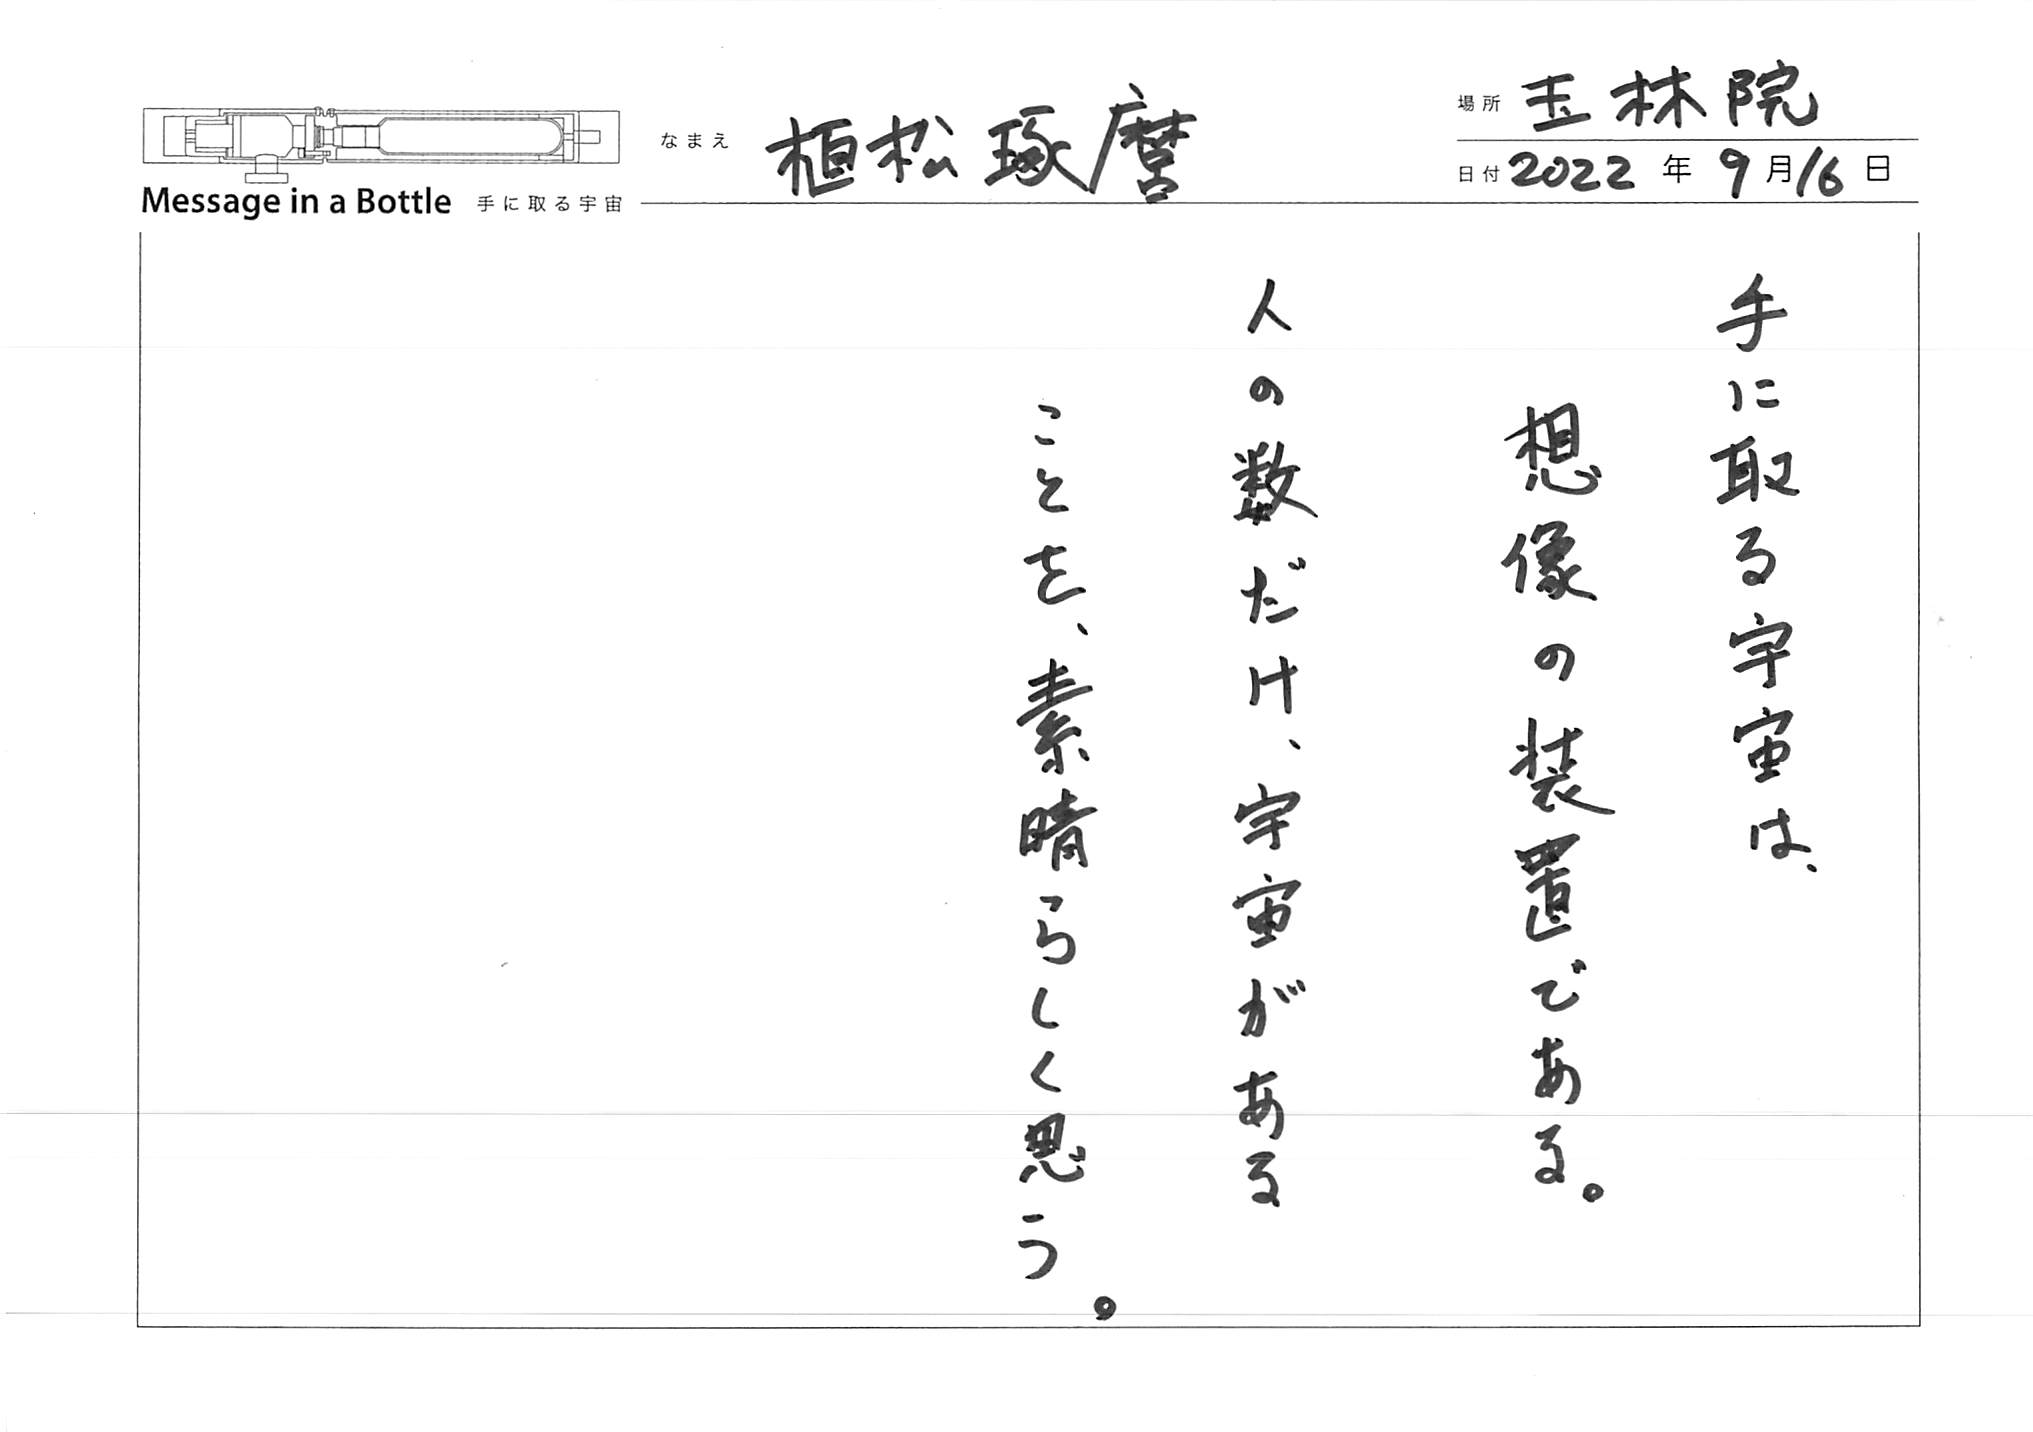 Message in a Bottle 手に取る宇宙
なまえ 植松琢麿
場所 玉林院
日付 2022年9月16日
手に取る宇宙は、
想像の装置である。
人の数だけ、宇宙がある
ことを、素晴らしく思う。